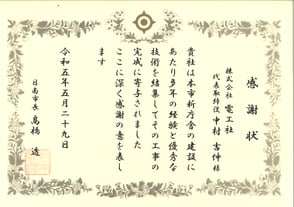 感謝状
株式会社 電工社
代表取締役 中村 吉伸 様
貴社は本市新庁舎の建設に
あたり多年の経験と優秀な
技術を結集してその工事の
完成に寄与されました
ここに深く感謝の意を表し
ます
令和五年五月二十九日
日南市長 髙橋 透